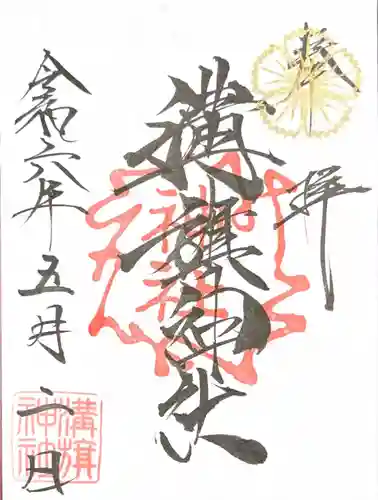 奉拝
溝旗神社
令和六年五月二日
溝旗神社